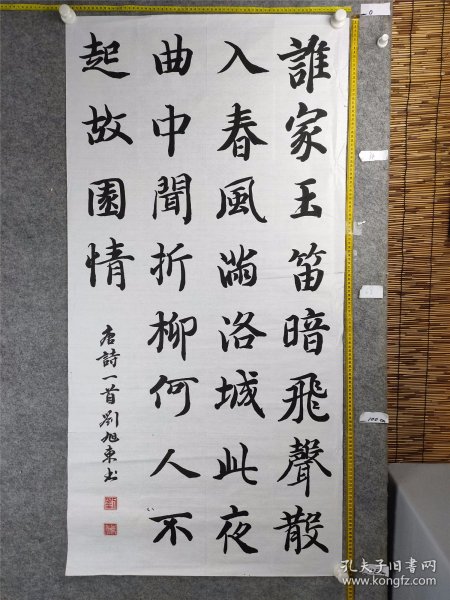 誰家玉笛暗飛聲散
入春風滿洛城此夜
曲中聞折柳何人不
起故園情
唐詩一首劉旭東书
孔夫子旧书网
www.kongfz.com